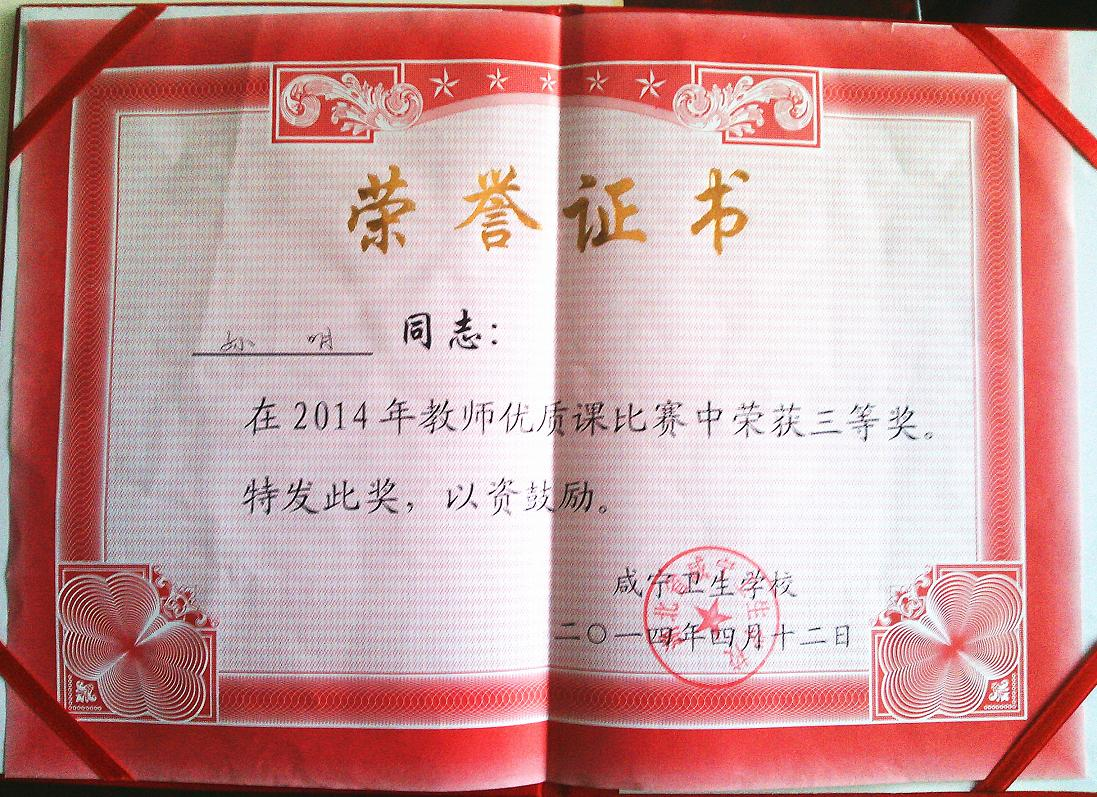 荣誉证书
孙明 同志：
在2014年教师优质课比赛中荣获三等奖。
特发此奖，以资鼓励。
咸宁卫生学校
二〇一四年四月十二日